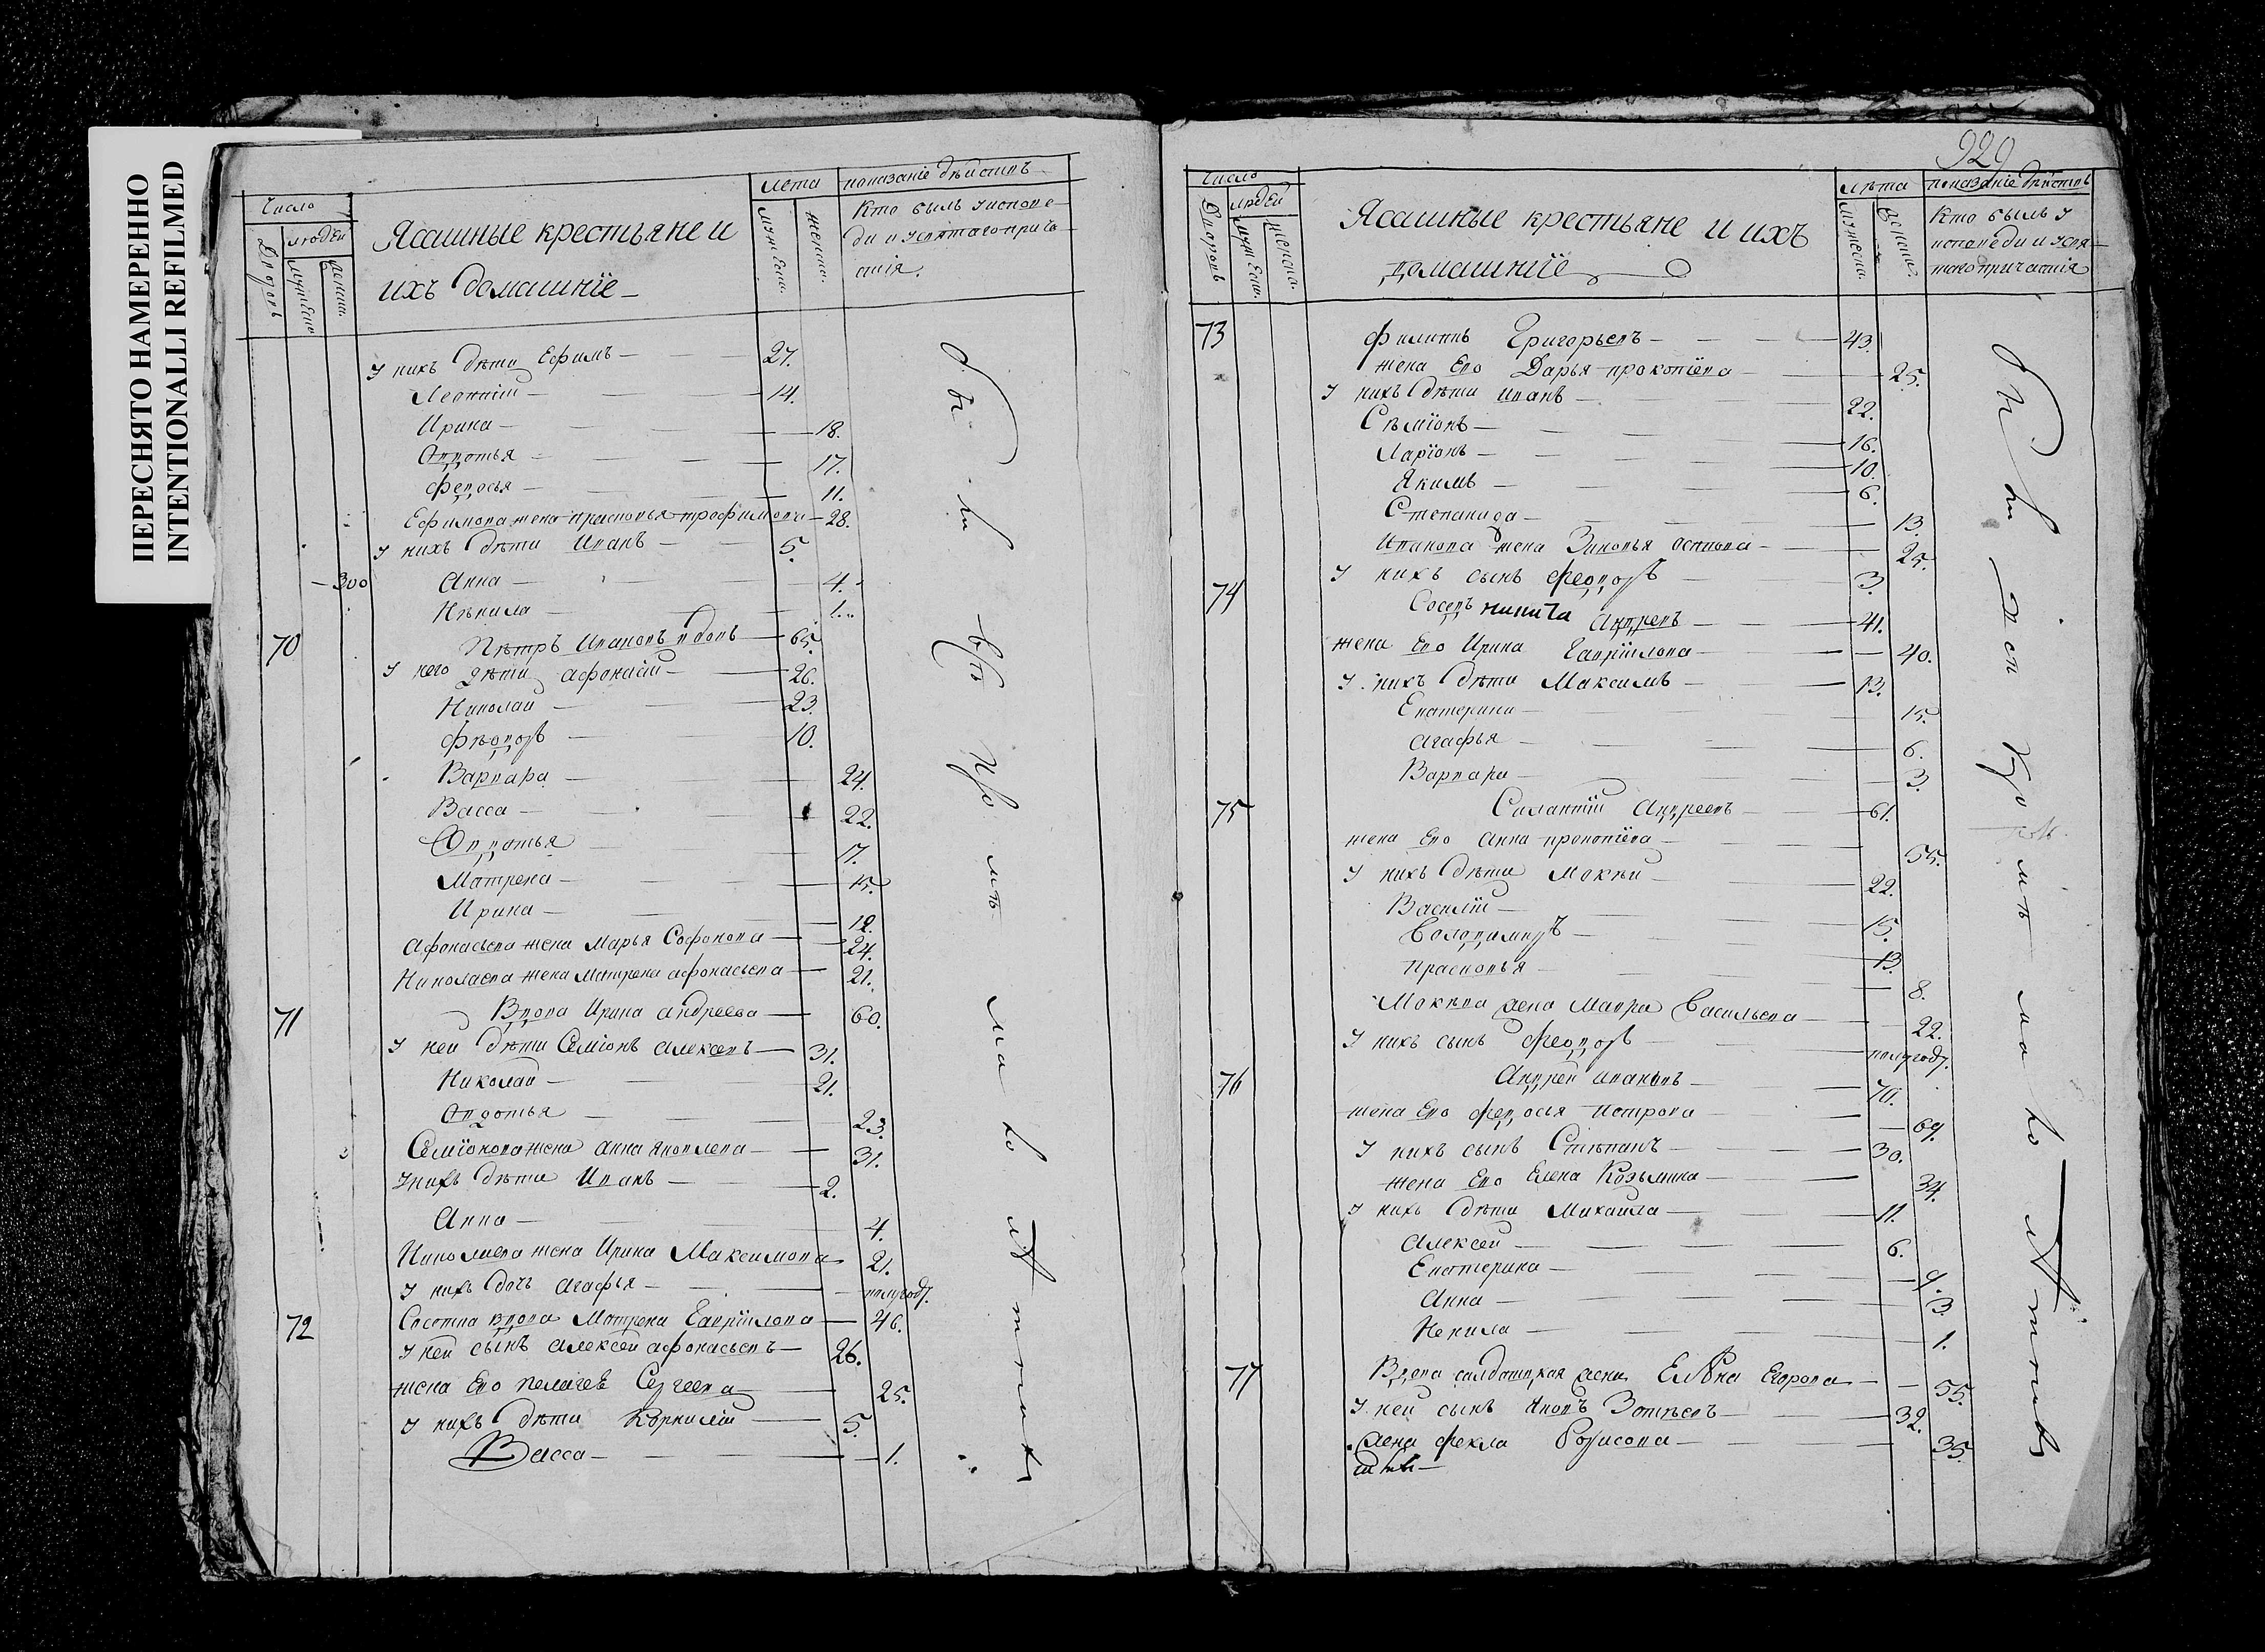 ПЕРЕСНЯТО НАМЕРЕННО
INTENTIONALLI REFILMED
Число
людей
Дворовъ
мужеска
женска.
Ясашные крестьяне и
ихъ домашнїе
лета
мужеска.
женска.
показанїе действъ
Кто былъ уиспове
ди иусвятагоприча
стїя.
У нихъ дѣти Ефимъ 27.
Леонтїй 14.
Ирина 18.
Авдотья 17.
Федосья 11.
Ефимова жена прасковья трофимова 28.
У нихъ дѣти Иванъ 5.
300 Анна 4.
Ненила 1.
70 Петръ Ивановъ вдовъ 65.
У него дѣти афонасїй 26.
Николай 23.
Федоръ 10.
Варвара 24.
Васса 22.
Авдотья 17.
Матрена 15.
Ирина 12.
Афонасьева жена Марья Софонова 24.
Николаева жена матрена афонасьева 21.
71 Вдова Ирина андреева 60.
У ней дѣти Семїонъ алексеевъ 31.
Николай 21.
Авдотья 23.
Семїонова жена анна яковлева 31.
Унихъ дѣти Иванъ 2.
Анна 4.
Николаева жена Ирина Максимова 21.
У нихъ дочь агафья полугоду.
72 вдова Матрена Гаврїилова 46.
У ней сынъ алексей афонасьевъ 26.
жена Ево пелагея Сергеева 25.
У нихъ дѣти Корнилїй 5.
Васса 1.
были
въ
про
ма
929
Число
людей
Дворовъ
мужеска.
женска.
Ясашные крестьяне и ихъ
домашнїе
лѣта
мужеска.
женска.
показанїе действъ
Кто былъ у
исповеди и усвя
таго причастїя
73 Филипъ Григорьевъ 43.
жена Ево Дарья прокопїева 25.
У нихъ дѣти иванъ 22.
Семїонъ 16.
Ларїонъ 10.
Якимъ 6.
Степанида 13.
Иванова жена Зиновья осипова 25.
У нихъ сынъ Феодоръ 3.
74 никита андреевъ 41.
жена Ево Ирина Гаврїилова 40.
У нихъ дѣти Максимъ 13.
Екатерина 15.
агафья 6.
Варвара 3.
75 Силантїй андреевъ 61.
жена Ево анна прокопїева 55.
У нихъ дѣти Мокѣи 22.
Василїй 15.
Володимиръ 13.
прасковья 8.
Мокѣва жена Мавра Васильева 22.
У нихъ сынъ Феодоръ полугоду.
76 андрей ивановъ 70.
жена Ево федосья петрова 69.
У нихъ сынъ Степанъ 30.
жена Ево Елена Козьмина 34.
У нихъ дѣти Михаила 11.
алексей 6.
Екатерина 9.
Анна 3.
Ненила 1.
77 Вдова салдатцкая жена Елена Егорова 55.
У ней сынъ Зотѣевъ 32.
жена фекла Борисова 35.